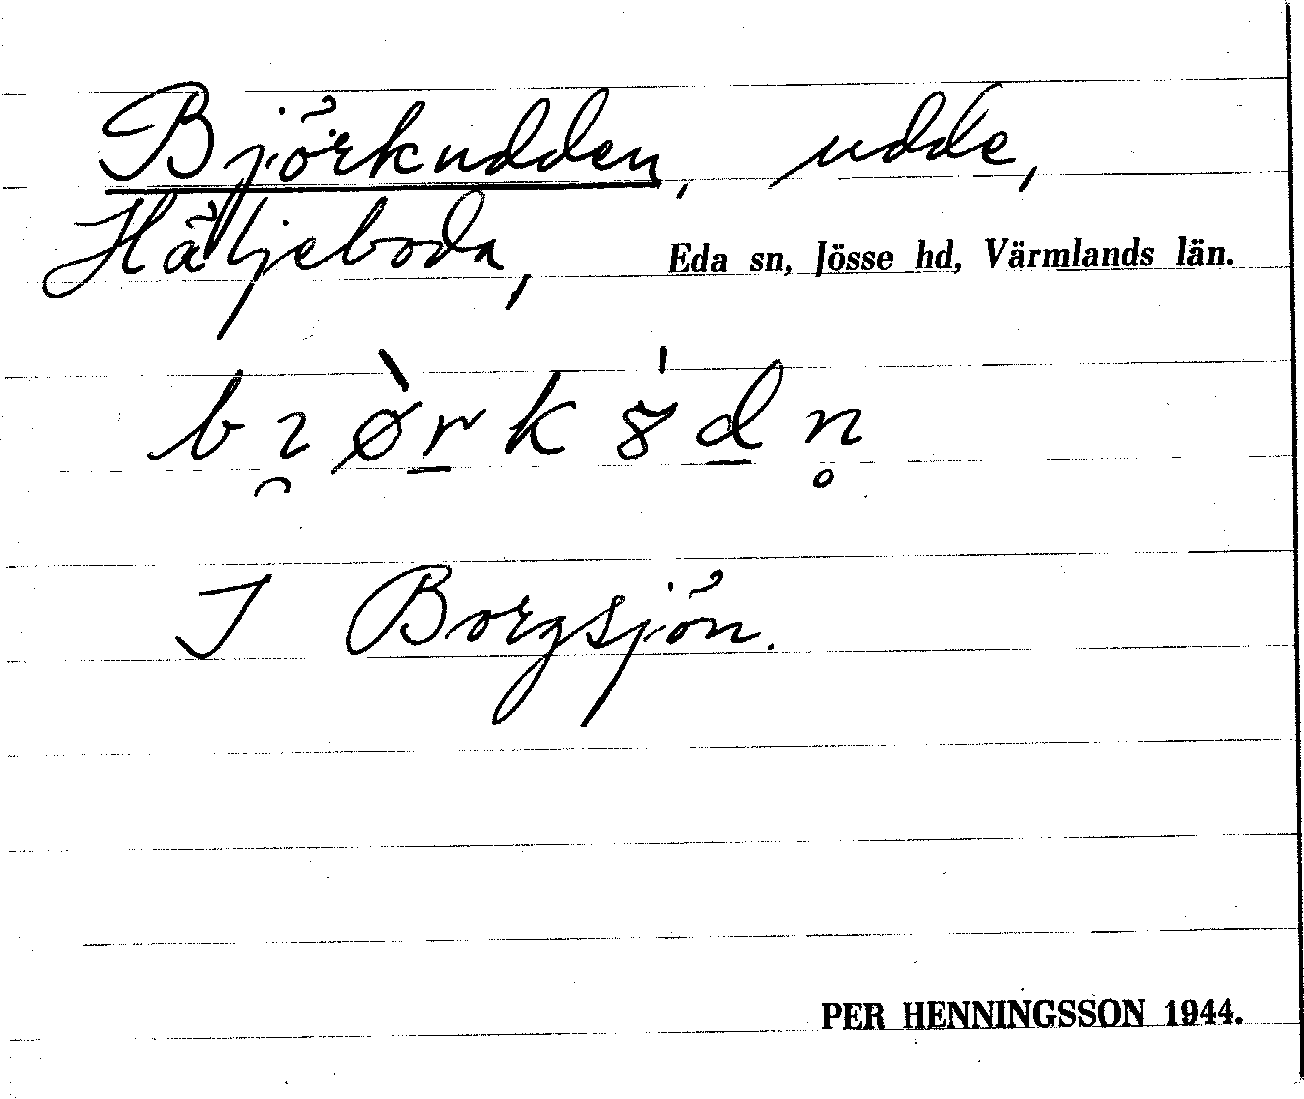 Björkudden, udde,
Häljeboda, Eda sn, Jösse hd, Värmlands län.
I Borgsjön.
PER HENNINGSSON 1944.